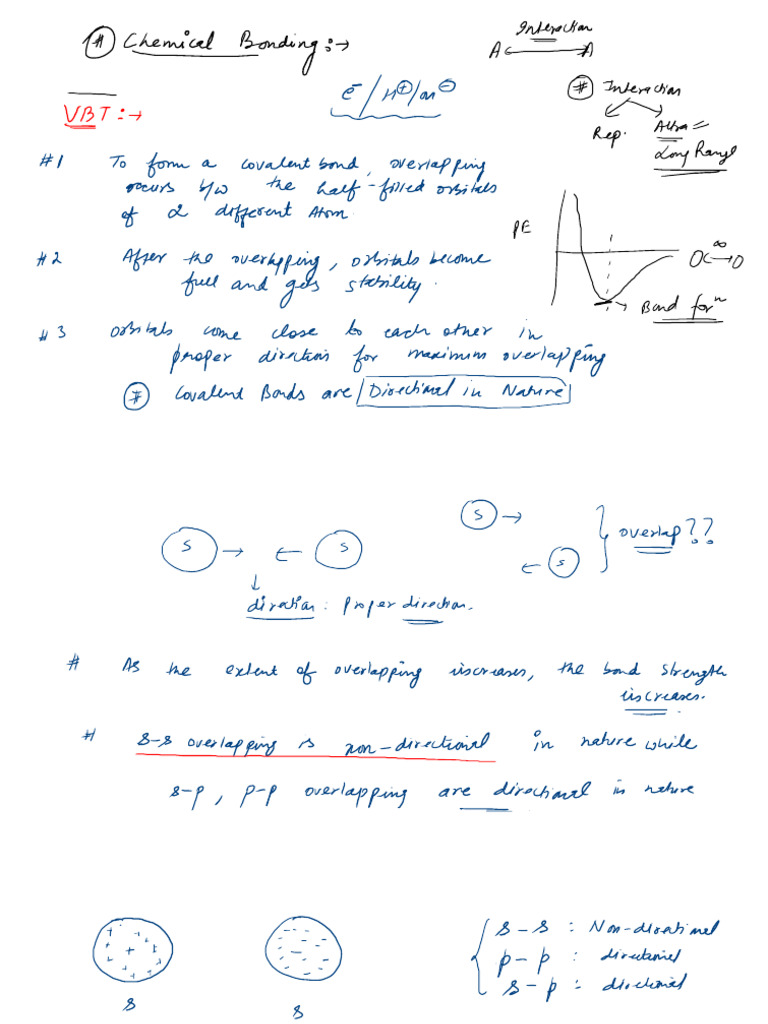 # Chemical Bonding :→
Interaction
A ↔ A
e⁻ / H⊕ / an⊖
# Interaction
Rep. Attra =
Long Range
VBT :→
#1 To form a covalent bond, overlapping
occurs b/w the half-filled orbitals
of 2 different Atom.
PE
∞
Bond forⁿ
#2 After the overlapping, orbitals become
full and gets stability.
#3 orbitals come close to each other in
proper direction for maximum overlapping
# Covalent Bonds are Directional in Nature
S → ← S
S →
← S
overlap??
diration : Proper direction.
# As the extent of overlapping increases, the bond strength
increases.
# s-s overlapping is non-directional in nature while
s-p, p-p overlapping are directional in nature
s
s
s-s : Non-dirational
p-p : directional
s-p : directional